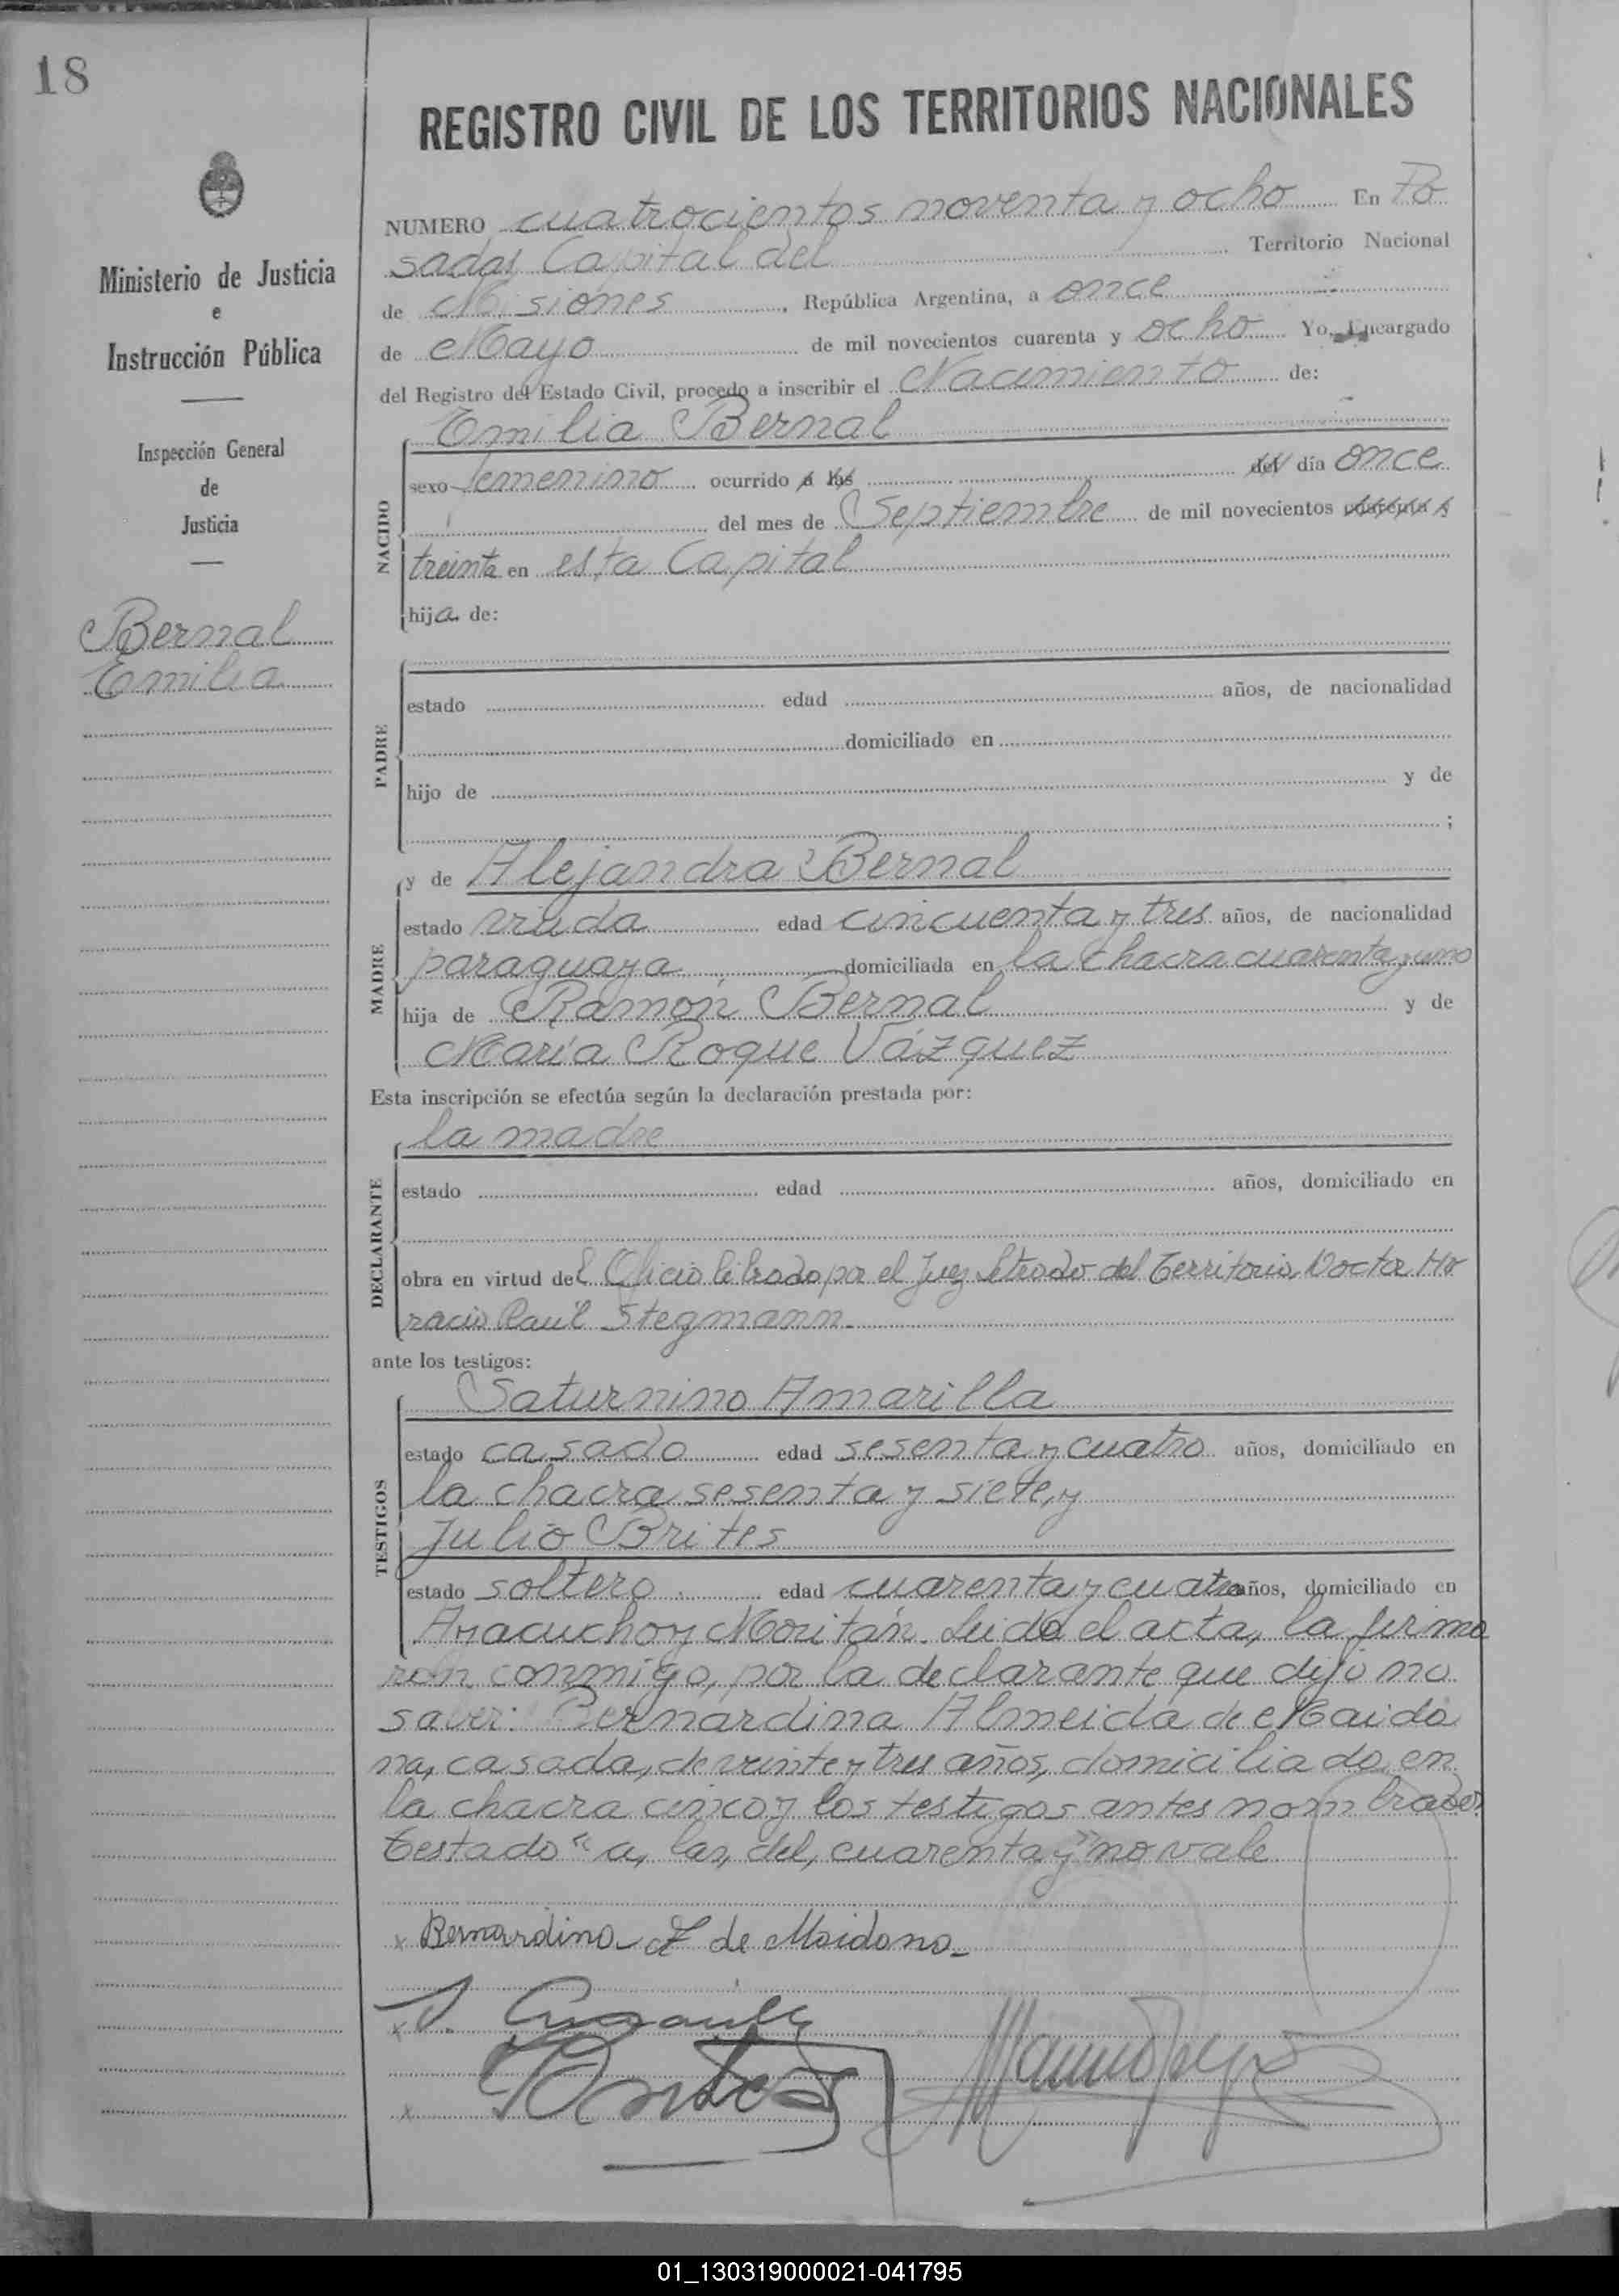 18
REGISTRO CIVIL DE LOS TERRITORIOS NACIONALES
Ministerio de Justicia
e
Instrucción Pública
Inspección General
de
Justicia
Bernal
Emilia
NUMERO cuatrocientos noventa y ocho En Po
sadas Capital del Territorio Nacional
de Misiones, República Argentina, a once
de Mayo de mil novecientos cuarenta y ocho Yo, Encargado
del Registro del Estado Civil, procedo a inscribir el Nacimiento de:
Emilia Bernal
NACIDO
sexo femenino ocurrido a las del día once
del mes de Septiembre de mil novecientos cuarenta y
treinta en esta Capital
hija de:
PADRE
estado edad años, de nacionalidad
domiciliado en
hijo de y de
;
y de Alejandra Bernal
MADRE
estado viuda edad cincuenta y tres años, de nacionalidad
paraguaya domiciliada en la chacra cuarenta y uno
hija de Ramón Bernal y de
María Roque Vázquez
Esta inscripción se efectúa según la declaración prestada por:
la madre
DECLARANTE
estado edad años, domiciliado en
obra en virtud del Oficio librado por el Juez Letrado del Territorio Doctor Ho
racio Raúl Stegmann.
ante los testigos:
Saturnino Amarilla
TESTIGOS
estado casado edad sesenta y cuatro años, domiciliado en
la chacra sesenta y siete, y
Julio Brites
estado soltero edad cuarenta y cuatro años, domiciliado en
Ayacucho y Moritán. Leida el acta, la firma
ron conmigo, por la declarante que dijo no
saber: Bernardina Almeida de Maido
na, casada, de veinte y tres años, domiciliada en
la chacra cinco y los testigos antes nombrados
Testado "a, las, del, cuarenta y" no vale
x Bernardina A de Maidona
x S.
x
01_130319000021-041795